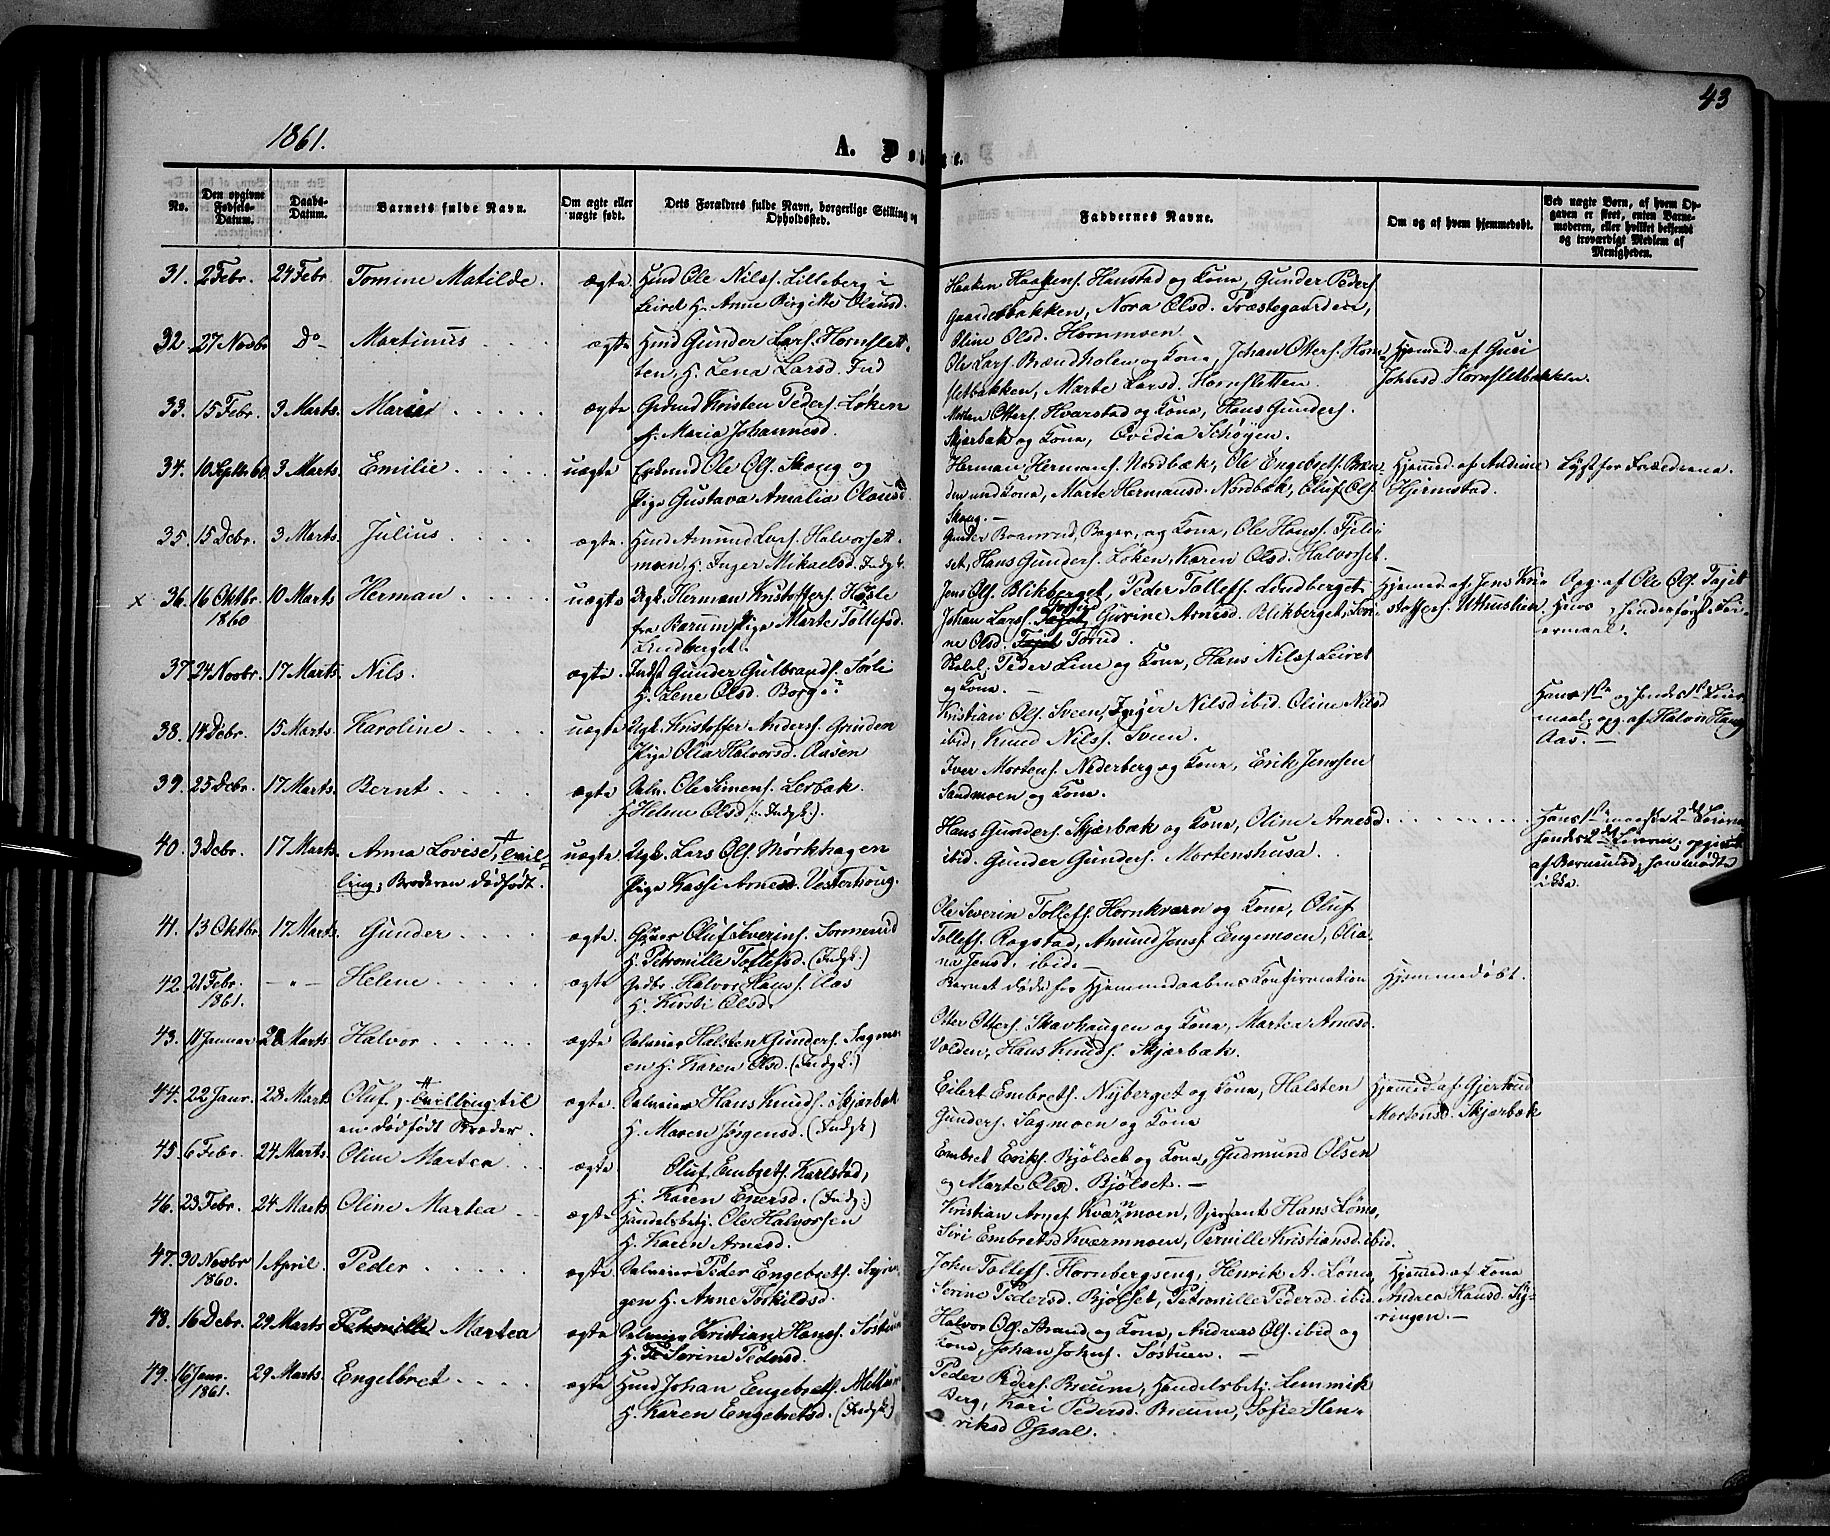 43
1861.
A. Døbte.
No.
Den opgivne Fødsels-Datum.
Daabs-Datum.
Barnets fulde Navn.
Om ægte eller uægte født.
Dets Forældres fulde Navn, borgerlige Stilling og Opholdssted.
Faddernes Navne.
Om og af hvem hjemmedøbt.
Ved uægte Børn, af hvem Opgaven er skeet, enten Barnemoderen, eller hvilket bekjendt og troværdigt Medlem af Menigheden.
31. 2 Febr. 24 Febr. Tomine Matilde. ægte Hmd Ole Nilss. Lilleberg i
Leiret H. Anne Birgitte Olausd.
Haaken Haakens. Haustad og Kone, Gunder Peders.
Gaarderbakken, Nora Olsd. Træstegaarden,
Oline Olsd. Hornmoen.
32. 27 Novbr Do Martinus ægte Hmd Gunder Lars. Hornslet-
ten, H. Lena Larsd. Ind
Ole Lars. Brændholen og Kone, Johan Otters. Horn
sletbakken, Marte Larsd. Hornsletten.
Hjemmed. af Guri
Johnsd Hornsletbakken.
33. 15 Febr. 3 Marts. Marie ægte Grdmd Kristen Peders. Løken
H. Maria Johannesd.
Morten Otters. Hvarstad og Kone, Hans Gunders.
Skjærbæk og Kone, Ovidia Schøyen.
34. 10 Septbr 60 3 Marts. Emilie uægte Enkmd Ole Ols. Skoug og
Pige Gustava Amalia Olausd
Herman Hermans. Nordbæk, Ole Engebrets. Bræn-
den und Kone, Marte Hermansd. Nordbæk, Oluf Ols.
Skoug.
Hjemmed. af Andine
Hjermstad.
Lyst for Forældrene.
35. 15 Debr. 3 Marts. Julius ægte Hmd Amund Lars. Halvorsett-
moen, H. Inger Mikaelsd. Indst.
Gunder Bronrud, Bager, og Kone, Ole Hans. Fjeld-
set, Hans Gunders. Løken, Karen Olsd. Halvorset.
x 36. 16 Oktbr. 1860 10 Marts Herman uægte Ugk. Herman Kristoffers. Hosle
fra Bærum, Pige Marte Tollefsd.
Lindberget.
Jens Ols. Blikberget, Peder Tollefs. Lindberget.
Johan Lars. Gurine Arnesd. Blikberget, Seri-
ne Olsd. Torud.
Hjemmed. af Jens Kri-
stoffers. Uthuslien
Opg. af Ole Ols. Tajet
Hans og hendes første Lei-
ermaal.
37. 24 Novbr. 17 Marts. Nils. ægte. Indst Gunder Gulbrands. Sørli
H. Lene Olsd. Borg
Skolel. Peder Line og Kone, Hans Nilss Leiret
og Kone.
38. 14 Debr. 15 Marts. Karoline uægte Ugk. Kristoffer Anders. Grinden
Pige Olia Halvorsd. Aasen
Kristian Ols. Sveen, Inger Nilsd ibid. Oline Nilsd
ibid, Knud Nilss. Sveen.
Hans 1ste og hendes 1ste Leier-
maal, opg. af Halvor Haug
Aas.
39. 25 Debr. 17 Marts Bernt ægte Salv. Ole Simens. Lerbak.
H. Helene Olsd. (Indst.)
Iver Mortens. Nederberg og Kone, Erik Jenssen
Sandmoen og Kone.
40. 3 Debr. 17 Marts Anna Lovise, tvil-
ling, Broderen dødfødt.
uægte Ugk. Lars Ols. Mørkhagen
Pige Kassi Arnesd. Vesterhoug.
Hans Gunders. Skjærbæk og Kone, Oline Arnesd
ibid. Gunder Gunders. Mortenshusa.
Hans maaske 2det Leierm.
hendes 2det Leierm., opgivet
af Barnemod, som mødte
ikke.
41. 13 Oktbr. 17 Marts. Gunder ægte Gaver Oluf Severins. Sormerud
H. Petronille Tollefsd. (Indst.)
Ole Severin Tollefs. Hornkværn og Kone, Oluf
Tollefs. Rogstad, Amund Jens. Engemoen, Olia-
na Jensd. ibid.
42. 21 Febr. 1861. -"- Helene ægte Grdbr. Halvor Hans. Aas
H. Kirsti Olsd.
Barnet døde før Hjemmedaabens Konfirmation
Hjemmedøbt.
43. 11 Januar 28 Marts Halvor ægte Salveier Halsten Gunders. Sagmo-
en H. Karen Olsd. (Indst.)
Otter Otters. Skarhaugen og Kone, Martea Arnesd.
Volden, Hans Knuds. Skjærbæk.
44. 22 Janr. 28 Marts Oluf, tvilling til
en dødfødt Broder.
ægte Salveier Hans Knuds. Skjærbæk
H. Maren Jørgensd. (Indst)
Eilert Embrets. Nyberget og Kone, Halsten
Gunders. Sagmoen og Kone
Hjemmed. af Gjertrud
Mortensd. Skjærbæk
45. 6 Febr. 24 Marts. Oline Martea ægte. Oluf Embrets. Karlstad,
H. Karen Enersd. (Indst.)
Embret Eriks. Bjølset og Kone, Gudmund Olsen
og Marte Olsd. Bjølset.
46. 23 Febr. 24 Marts Oline Martea ægte Handelsbetj. Ole Halvorsen
H. Karen Arnesd.
Kristian Arnes. Kværnmoen, Serjeant Hans Lømo,
Siri Embretsd Kværnmoen, Pernille Kristiansd. ibid.
47. 30 Novbr 1860. 1 April. Peder ægte Salveier Peder Engebrets. Syrin-
gen H. Anne Torkildsd.
John Tollefs. Hornbergseng, Henrik A. Lømo,
Serine Pedersd. Bjølset, Petronille Pedersd. ibid.
Hjemmed. af Kone
Andrea Hansd. Sy-
ringen.
48. 16 Debr. 29 Marts Petronille Martea ægte Salveier Kristian Hans. Søstuen
H. Serine Pedersd.
Halvor Ols. Strand og Kone, Andreas Ols. ibid og
Kone, Johan Johns. Søstuen.
49. 16 Janr. 1861. 29 Marts. Engelbret ægte Hmd Johan Engebrets. Melt
H. Karen Engebretsd. (Indst.)
Peder Peders. Breum, Handelsbetj. Lemmik
Berg, Kari Pedersd. Breum, Sofie Hen-
riksd Opsal.